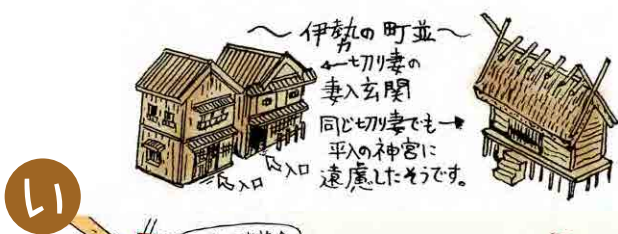 〜伊勢の町並〜
←切り妻の
妻入玄関
同じ切り妻でも→
平入の神宮に
遠慮したそうです。
入口
入口
い